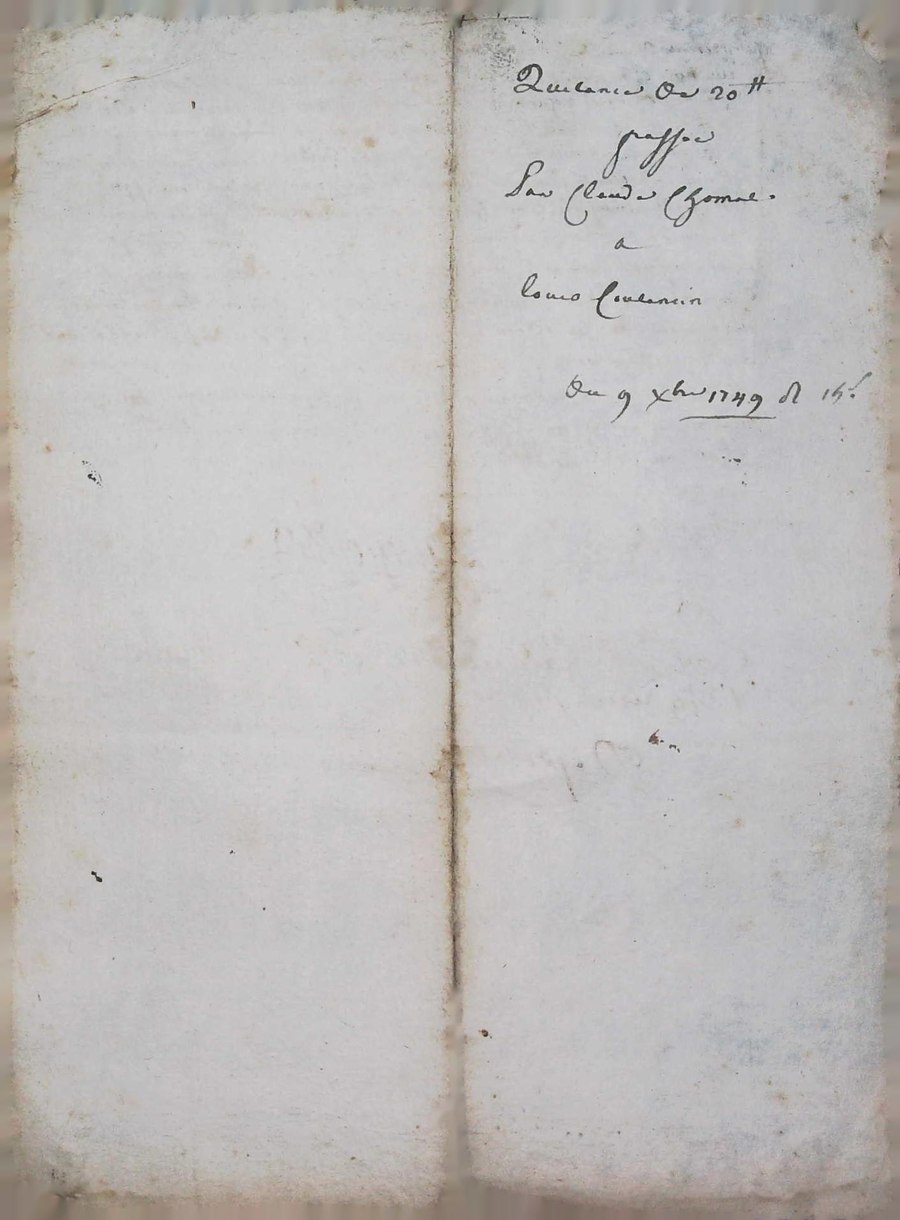 Quitance de 20 ₶
passée
Par Claude Chomel
a
louis Coulannin
Du 9 Xbre 1749